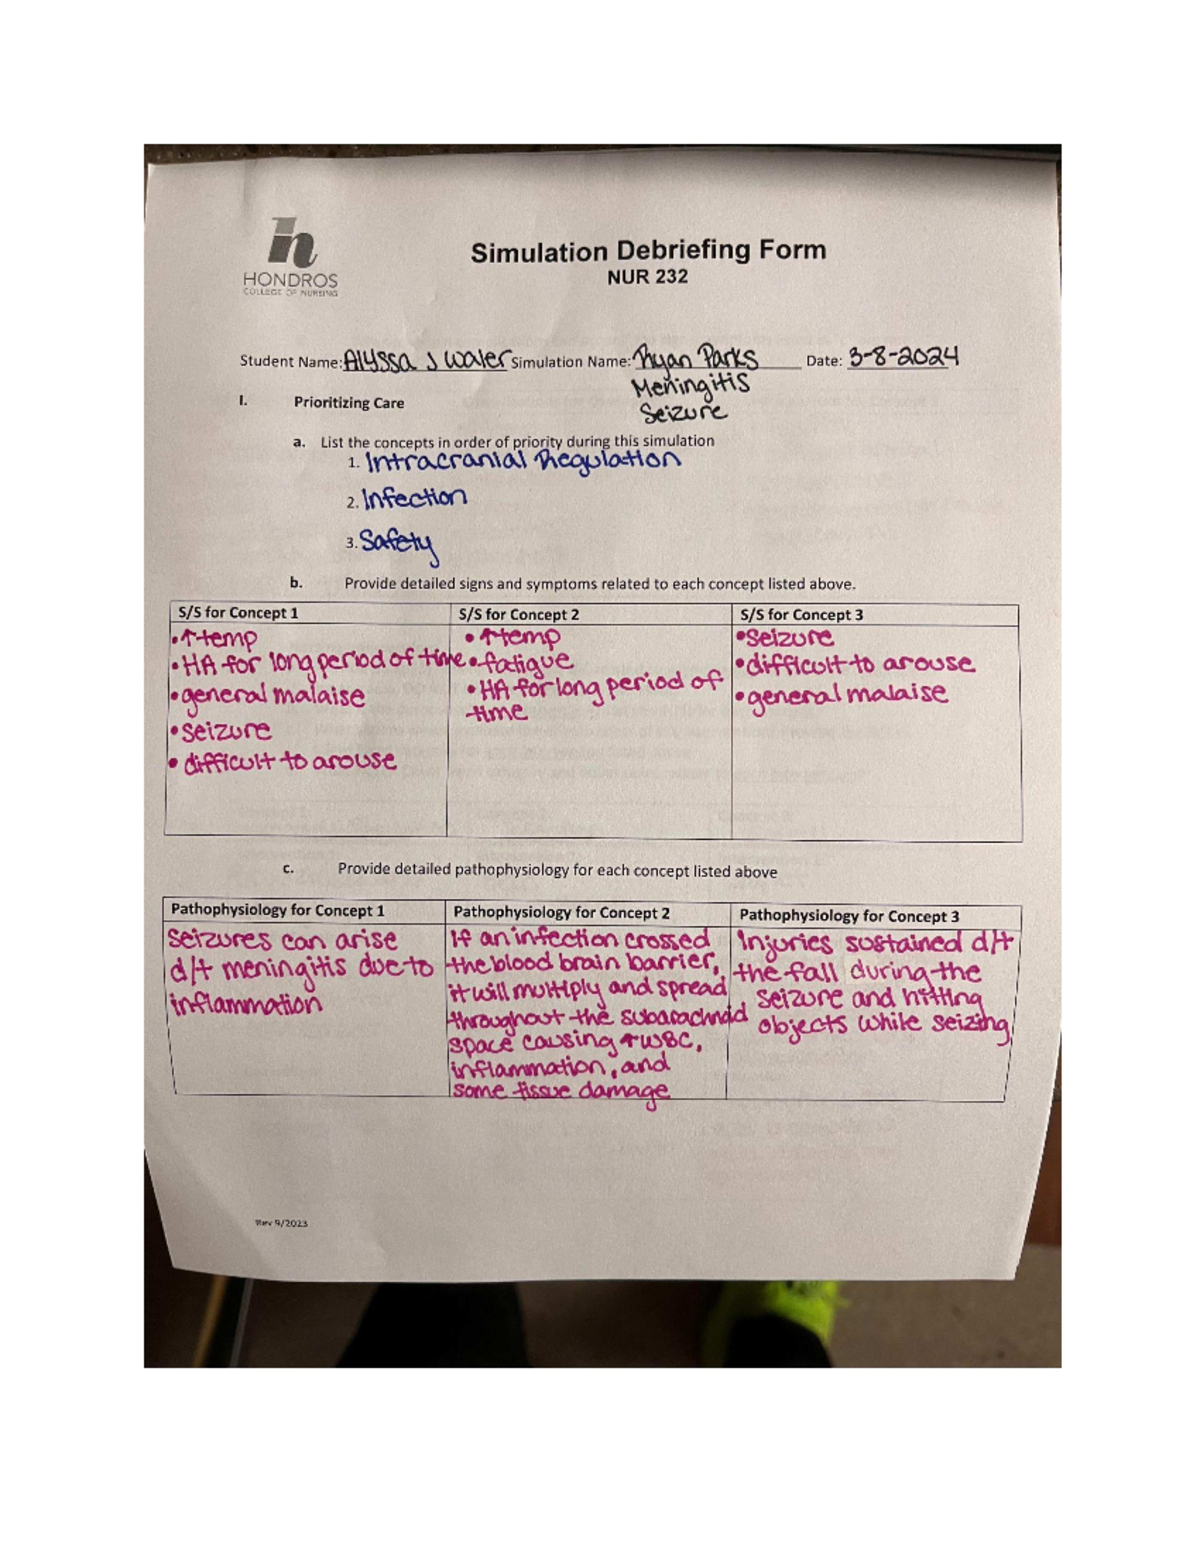 HONDROS
COLLEGE OF NURSING
Simulation Debriefing Form
NUR 232
Student Name: Alyssa J Waler Simulation Name: Ryan Parks Date: 3-8-2024
Meningitis
Seizure
I. Prioritizing Care
a. List the concepts in order of priority during this simulation
1. Intracranial Regulation
2. Infection
3. Safety
b. Provide detailed signs and symptoms related to each concept listed above.
S/S for Concept 1
•↑temp
•HA for long period of time
•general malaise
•seizure
•difficult to arouse
S/S for Concept 2
•↑temp
•fatigue
•HA for long period of
time
S/S for Concept 3
•seizure
•difficult to arouse
•general malaise
c. Provide detailed pathophysiology for each concept listed above
Pathophysiology for Concept 1
Seizures can arise
d/t meningitis due to
inflammation
Pathophysiology for Concept 2
If an infection crossed
the blood brain barrier,
it will multiply and spread
throughout the subarachnoid
space causing ↑WBC,
inflammation, and
some tissue damage
Pathophysiology for Concept 3
Injuries sustained d/t
the fall during the
seizure and hitting
objects while seizing
Rev 9/2023